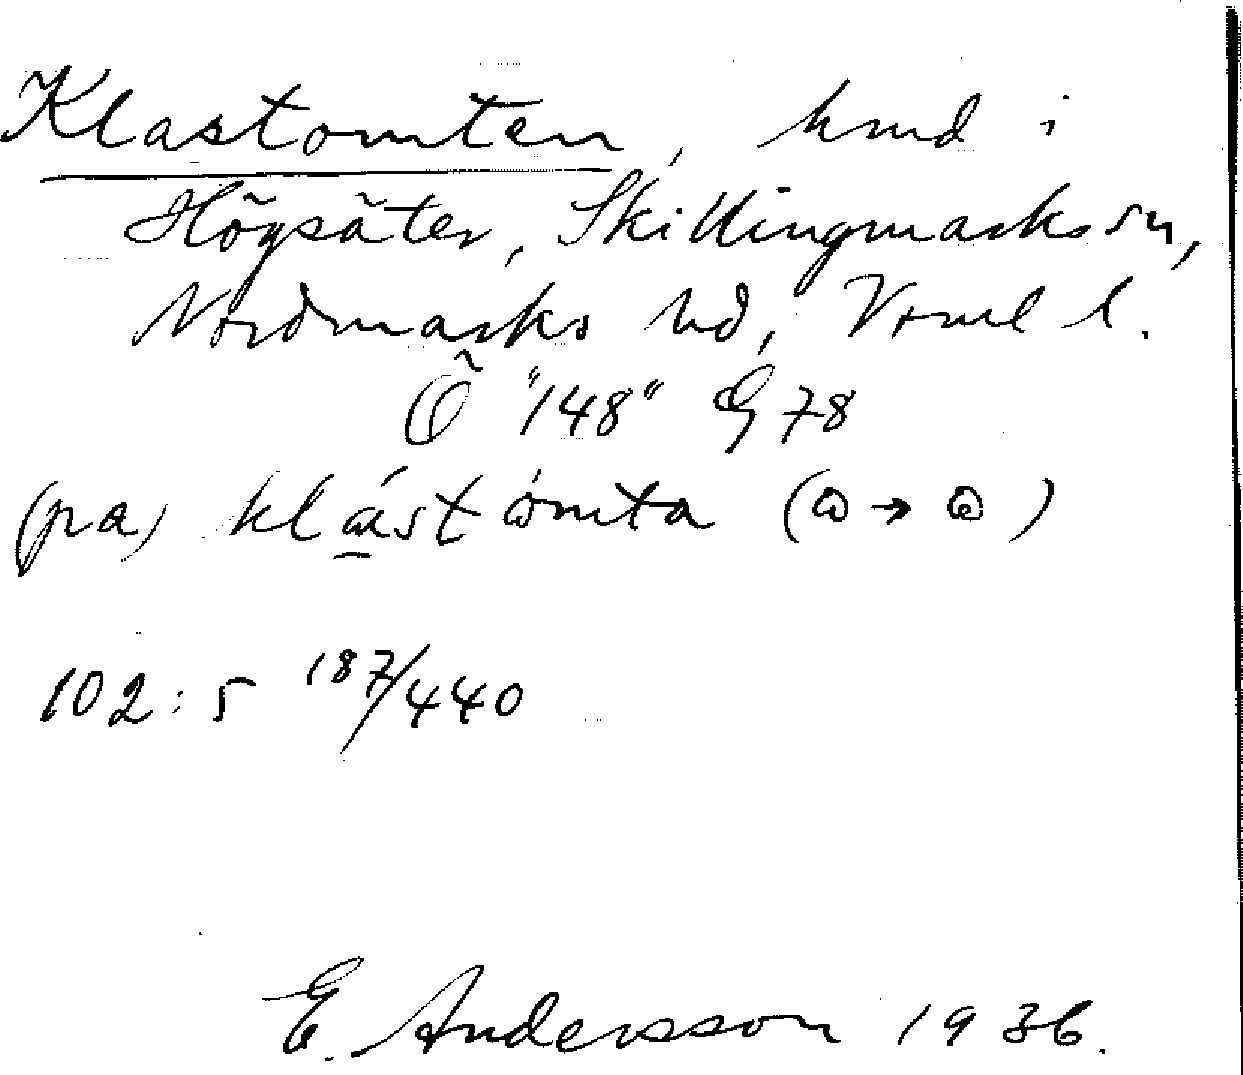 Klastomten, hmd i
Högsäter, Skillingmarks sn,
Nordmarks hd, Vrml l.
Ö "148" G 78
(pa) klást
102:5 187/440
E. Andersson 1936.